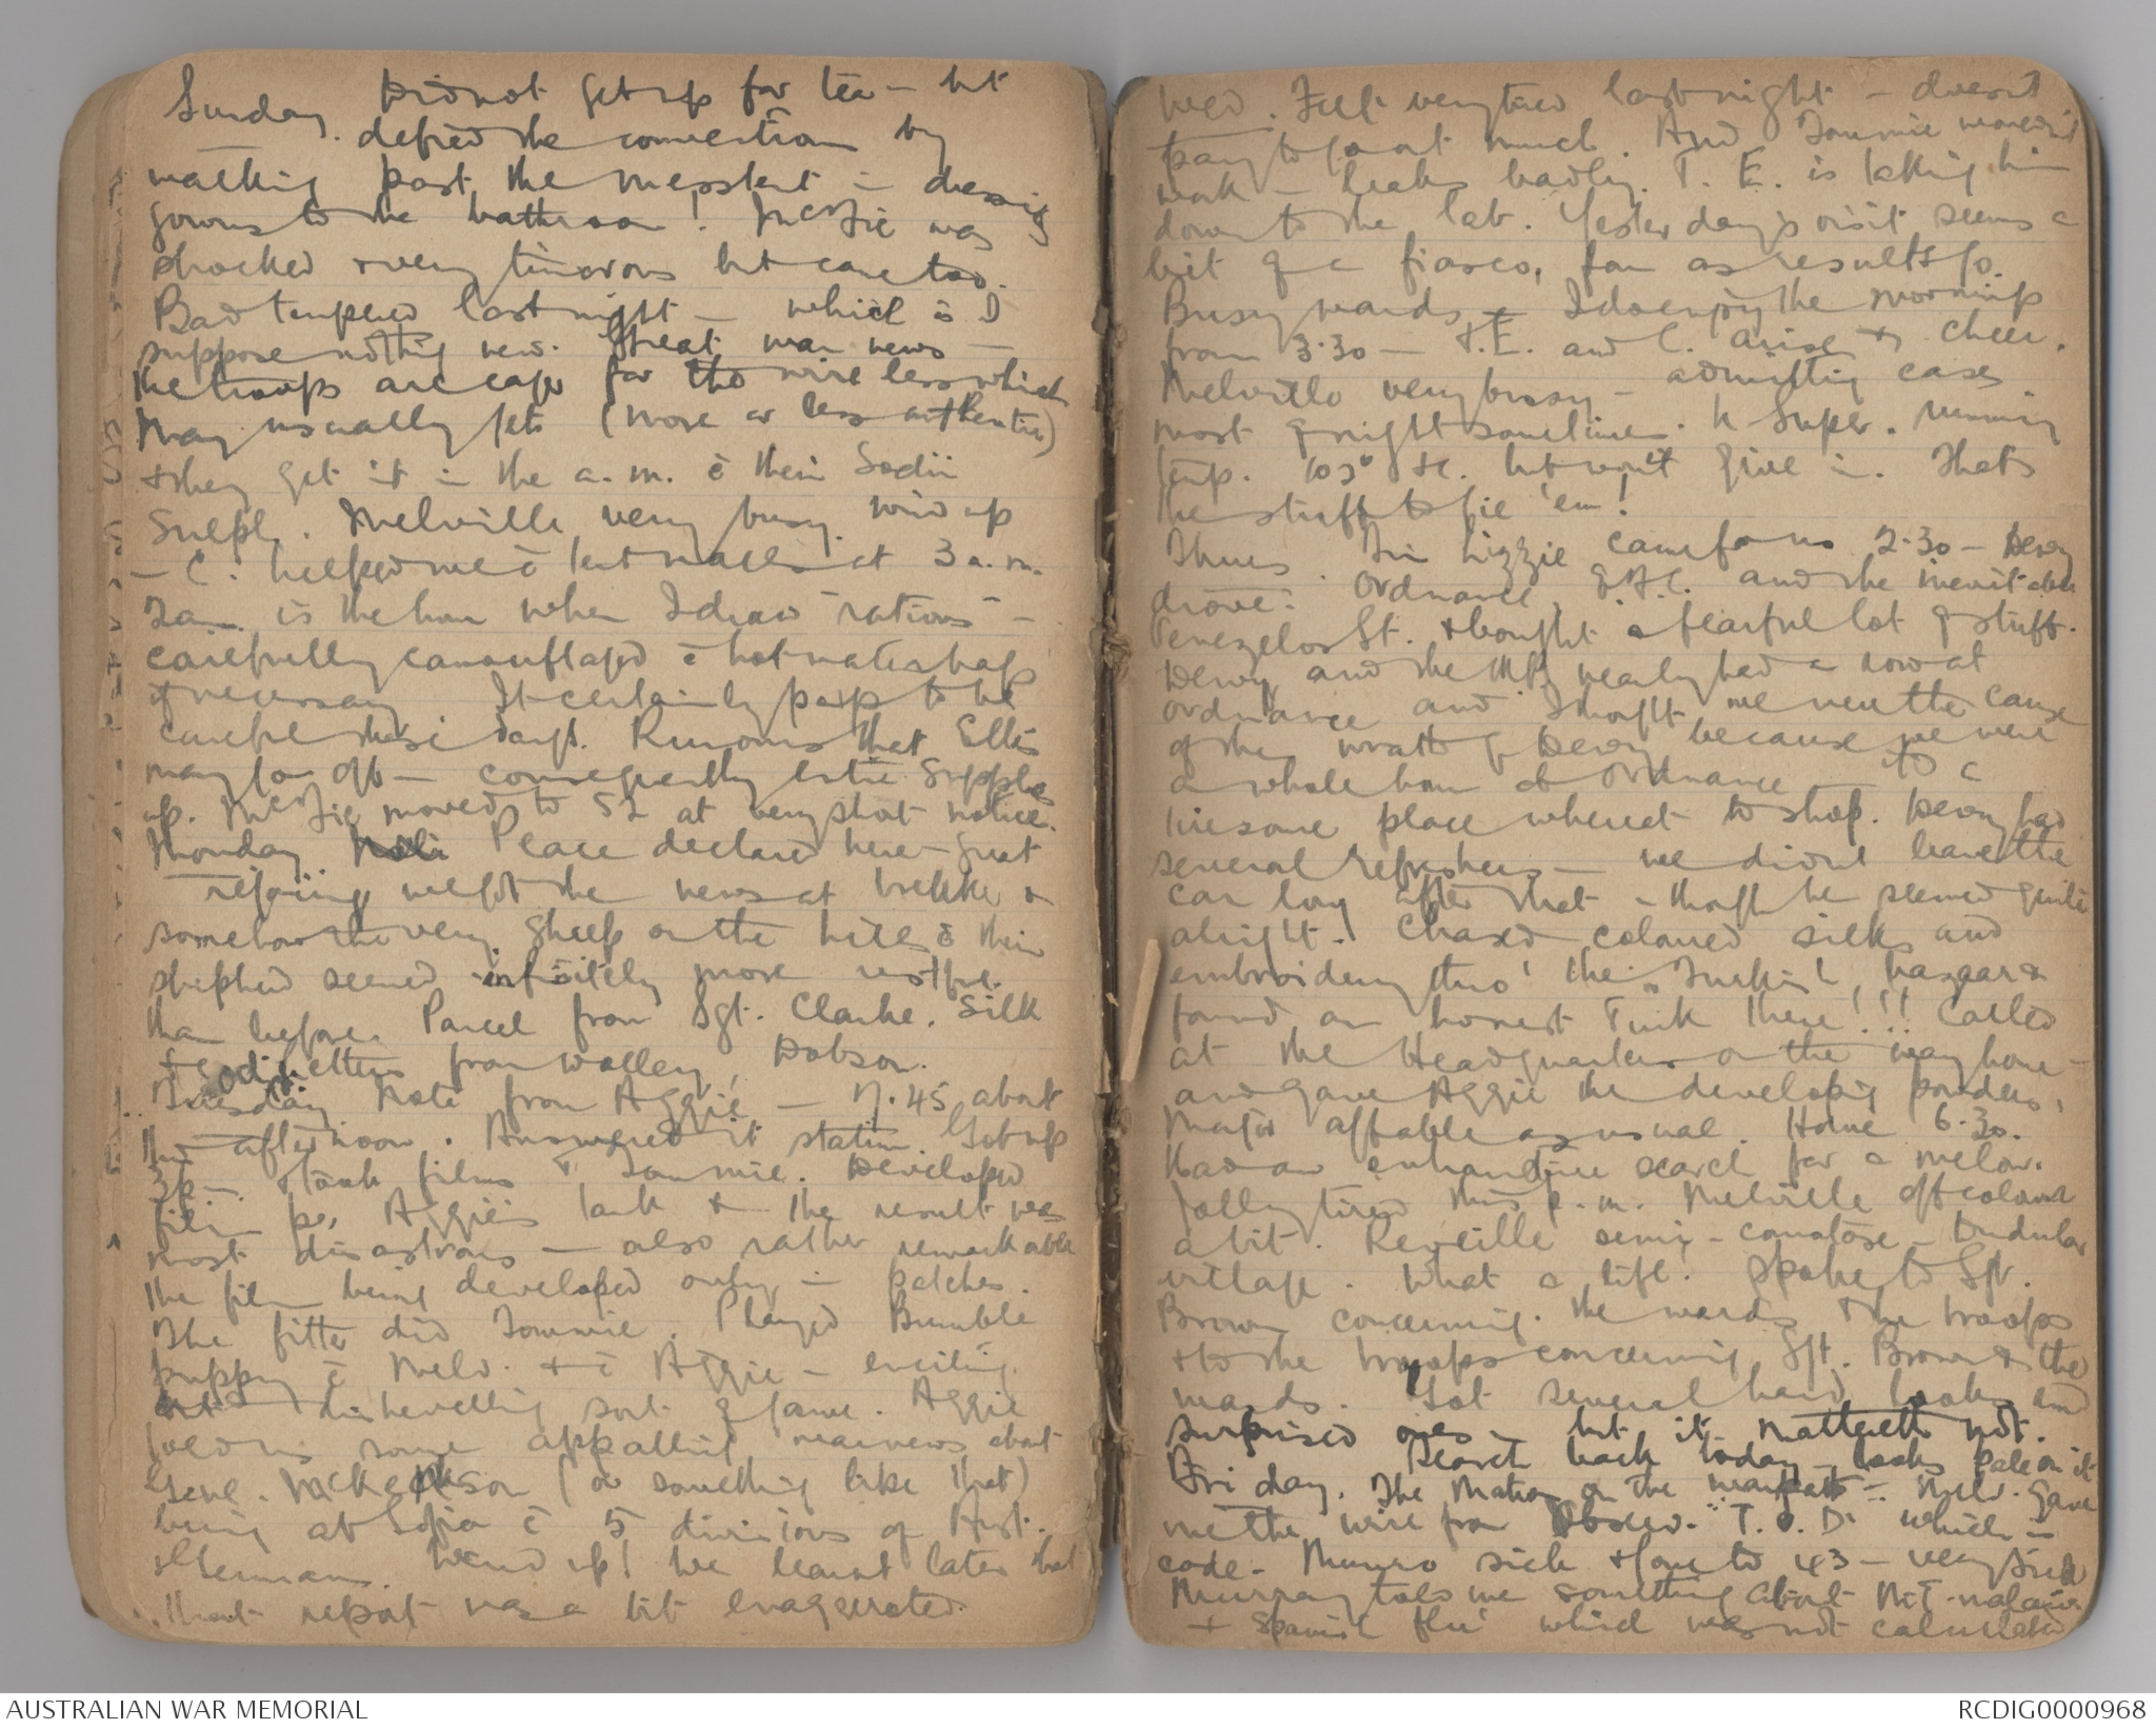 Sunday. Did not get up for tea – but
defied the convention by
walking past the mess tent in dressing
gowns to the bathroom! McFie was
shocked & very timorous but came too.
Bad tempered last night – which is I
suppose nothing new. Great war news –
the troops are eager for the wireless which
May usually gets (more or less authentic)
& they get it in the a.m. c̄ their Sodii
Sulph. Melville very busy. Wind up
– C. helped me c̄ tent walls at 3 a.m.
is the hour when I draw "rations" –
carefully camouflaged c̄ hot water bags
if necessary. It certainly pays to be
careful these days. Rumours that Ellis
may go off – consequently
up. McFie moved to 52 at very short notice.
Monday. Peace declared here – great
rejoicing we got the news at brekker &
somehow the very sheep on the hills c̄ their
shepherd seemed infinitely more restful
than before. Parcel from Sgt. Clarke. Silk
from Dobson.
Tuesday Note from Aggie – N. 45 about
this afternoon. Answered it statim. Got up
3p.m. & took films Tommie. Developed
film per Aggie's tank & the result was
most disastrous – also rather remarkable
the film being developed only in patches.
The fitter did Tommie. Played Bumble
puppy c̄ Melv. & c̄ Aggie – exciting
dishevelling sort of game. Aggie
some appalling war news about
Genl. McKesson (or something like that)
being at Sofia c̄ 5 divisions of Aust.
& Germans. Wind up! We learnt later that
that report was a bit exaggerated.
Wed. Felt very tired last night – doesn't
pay to go out much. And Tommie
work – leaks badly. T.E. is taking him
down to the lab. Yesterday's visit seems a
bit of a fiasco, far as results go.
Busy wards – I do enjoy the mornings
from 3.30 – T.E. and C. arise & cheer.
Melville very busy – admitting cases
most of night sometimes. N. Super. running
temp. 103° &c. but won't give in. That's
the stuff to gie 'em!
Thurs. Tin Lizzie came for us 2.30 – Dewy
drove: Ordnance, and the inevitable
Venezelos St. & bought a fearful lot of stuff.
Dewy and the MP. nearly had a row at
ordnance and I thought we were the cause
of the wrath of Dewy because we were
a whole hour at Ordnance – it's a
tiresome place whereat to shop. Dewy had
several refreshers – we didn't leave the
car long after that – though he seemed quite
alright. Chased coloured silks and
embroidery thro' the Turkish bazaar &
found an honest Turk there!!! Called
at the Headquarters on the way home –
and gave Aggie the developing powders.
Major affable as usual. Home 6.30.
Had an exhaustive search for a melon.
Jolly tired this p.m. Melville off colour
a bit. Reveille semi-comatose –
village. What a life! Spoke to Sgt.
Brown concerning the wards & the troops
& to the troops concerning Sgt. Brown & the
wards. Got several hard looks and
surprised ones – but it mattereth not.
Friday. Search back today – looks pale on it
The Matron on the warpath – Melv. gave
me the wire from "T.O.D." which is
code. Munro sick & gone to 43 – very sick
Murray told me something about M.T. malaria
& Spanish flu' which was not calculated